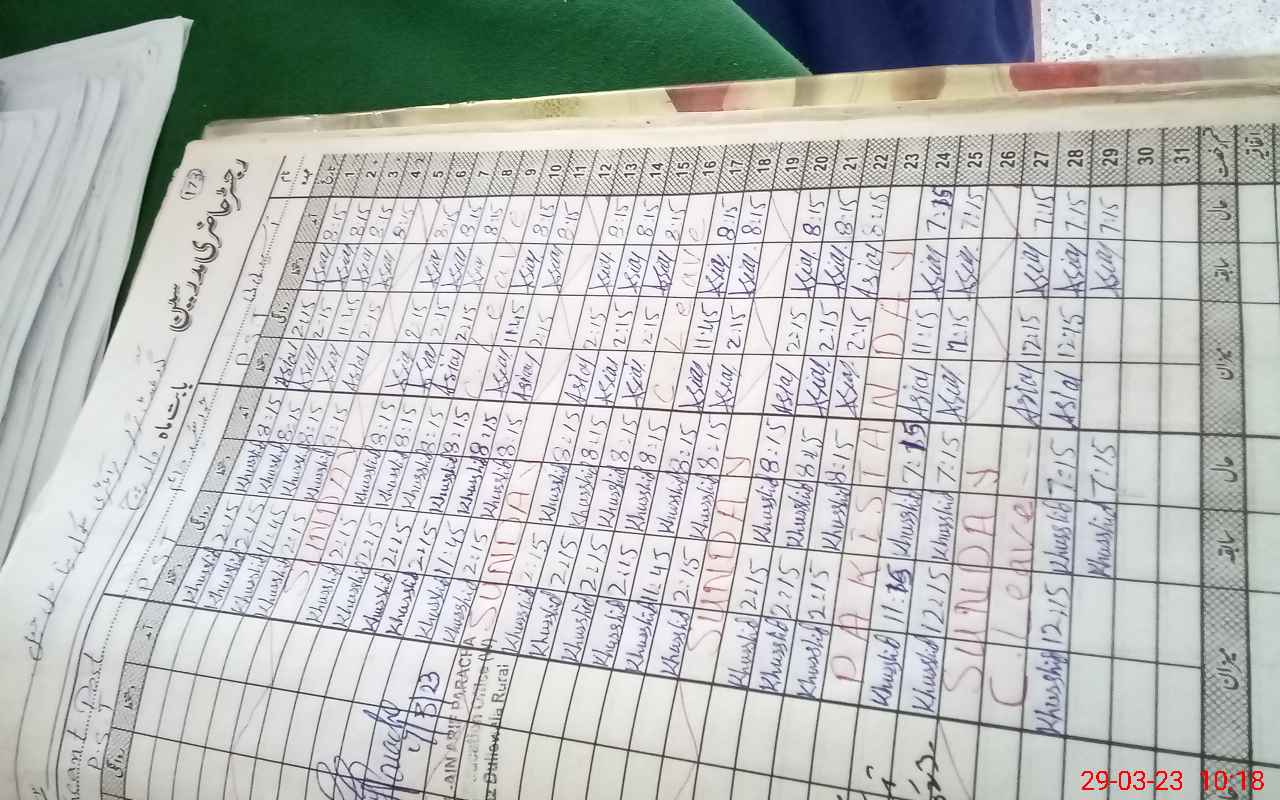 173
رجسٹر حاضری مدرسین
بابت ماہ
PST
PST
1 8:15 Asia 2:15 Asia 8:15 Khurshid 2:15 Khurshid
2 8:15 Asia 2:15 Asia 8:15 Khurshid 2:15 Khurshid
3 8:15 Asia 11:45 Asia 8:15 Khurshid 11:45 Khurshid
4 8:15 Asia 2:15 Asia 8:15 Khurshid 2:15 Khurshid
5 SUNDAY
6 8:15 Asia 2:15 Asia 8:15 Khurshid 2:15 Khurshid
7 8:15 Asia 2:15 Asia 8:15 Khurshid 2:15 Khurshid
8 8:15 Asia 2:15 Asia 8:15 Khurshid 2:15 Khurshid
9 C. Leave 8:15 Khurshid 2:15 Khurshid
10 8:15 Asia 11:45 Asia 8:15 Khurshid 11:45 Khurshid
11 8:15 Asia 2:15 Asia 8:15 Khurshid 2:15 Khurshid
12 SUNDAY
13 8:15 Asia 2:15 Asia 8:15 Khurshid 2:15 Khurshid
14 8:15 Asia 2:15 Asia 8:15 Khurshid 2:15 Khurshid
15 8:15 Asia 2:15 Asia 8:15 Khurshid 2:15 Khurshid
16 C. Leave 8:15 Khurshid 2:15 Khurshid
17 8:15 Asia 11:45 Asia 8:15 Khurshid 11:45 Khurshid
18 8:15 Asia 2:15 Asia 8:15 Khurshid 2:15 Khurshid
19 SUNDAY
20 8:15 Asia 2:15 Asia 8:15 Khurshid 2:15 Khurshid
21 8:15 Asia 2:15 Asia 8:45 Khurshid 2:15 Khurshid
22 8:15 Asia 2:15 Asia 8:15 Khurshid 2:15 Khurshid
23 PAKESTAN DAY
24 7:15 Asia 11:15 Asia 7:15 Khurshid 11:15 Khurshid
25 7:15 Asia 12:15 Asia 7:15 Khurshid 12:15 Khurshid
26 SUNDAY
27 7:15 Asia 12:15 Asia C. Leave
28 7:15 Asia 12:15 Asia 7:15 Khurshid 12:15 Khurshid
29 7:15 Asia 7:15 Khurshid
30
31
حال سابقہ میزان حال سابقہ میزان
AIN ARIF PARACHA
Rural
29-03-23 10:18